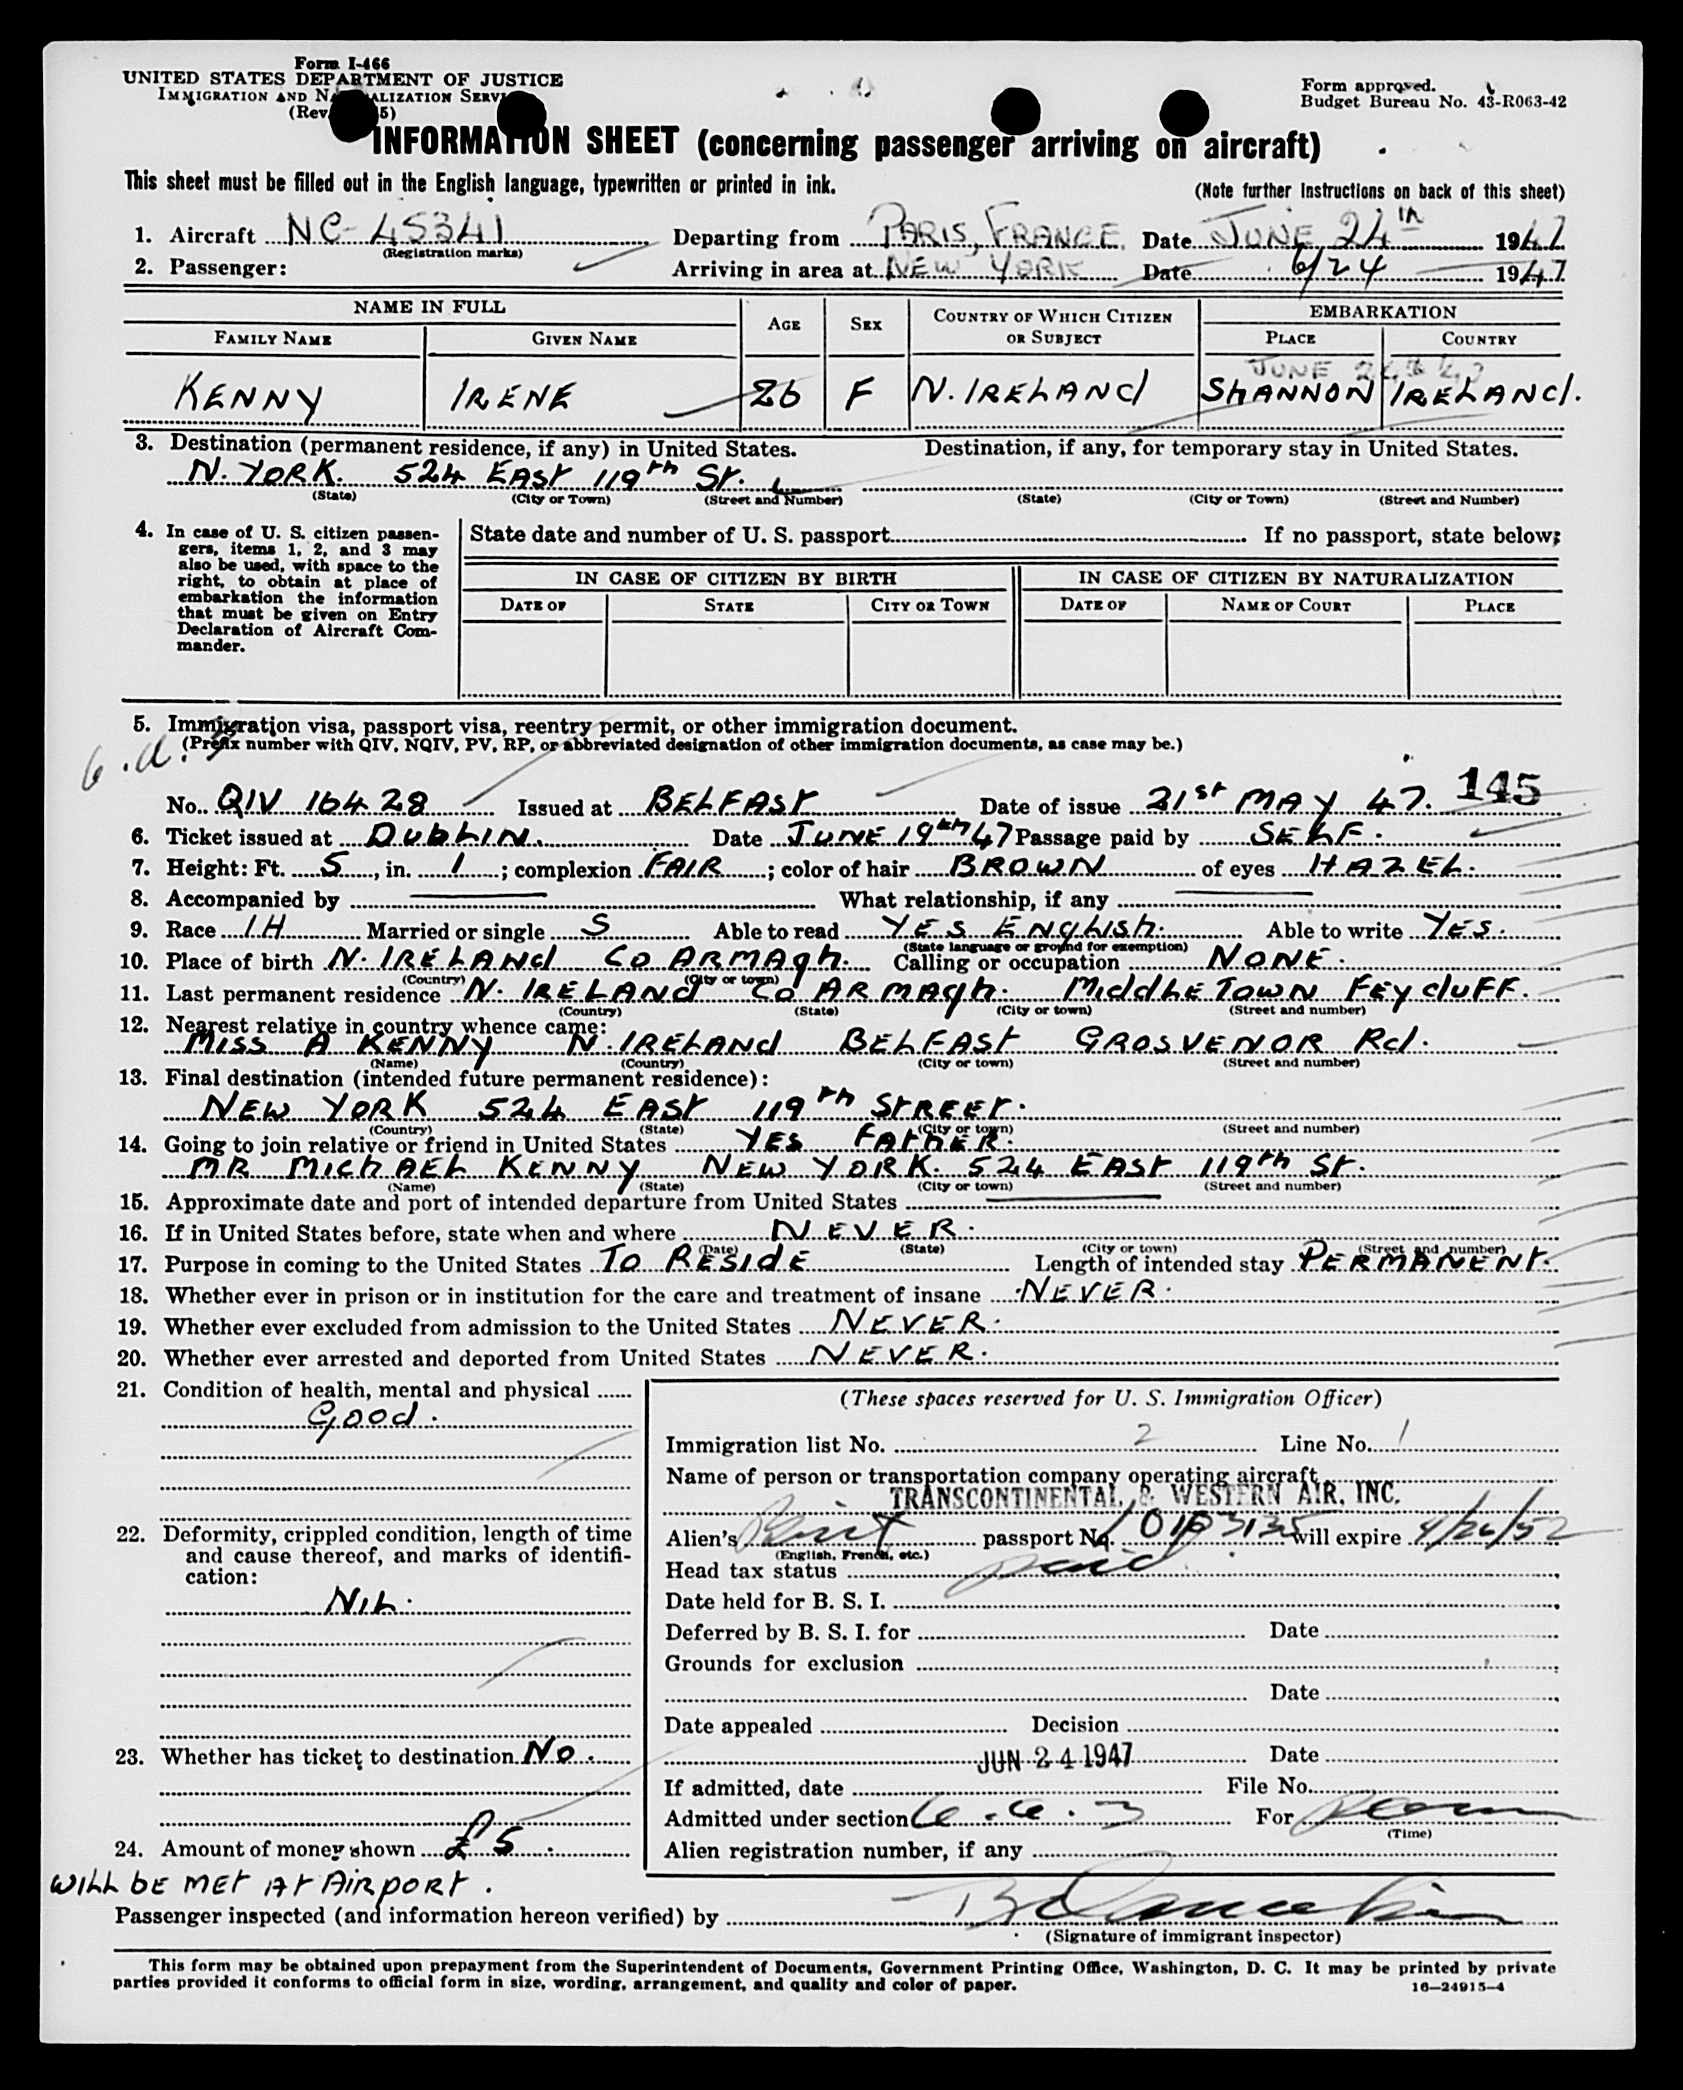 Form I-466
UNITED STATES DEPARTMENT OF JUSTICE
IMMIGRATION AND NATURALIZATION SERVICE
(Rev. 5)
Form approved.
Budget Bureau No. 43-R063-42
INFORMATION SHEET (concerning passenger arriving on aircraft)
This sheet must be filled out in the English language, typewritten or printed in ink.
(Note further instructions on back of this sheet)
1. Aircraft NC-45341 Departing from PARIS, FRANCE. Date JUNE 24th 1947
(Registration marks)
2. Passenger: Arriving in area at NEW YORK Date 6/24 1947
NAME IN FULL AGE SEX COUNTRY OF WHICH CITIZEN OR SUBJECT EMBARKATION
FAMILY NAME GIVEN NAME PLACE COUNTRY
JUNE 24th 47
KENNY IRENE 26 F N. IRELANd ShANNON IRELANd.
3. Destination (permanent residence, if any) in United States. Destination, if any, for temporary stay in United States.
N. YORK. 524 EAST 119th ST.
(State) (City or Town) (Street and Number) (State) (City or Town) (Street and Number)
4. In case of U. S. citizen passen-
gers, items 1, 2, and 3 may
also be used, with space to the
right, to obtain at place of
embarkation the information
that must be given on Entry
Declaration of Aircraft Com-
mander.
State date and number of U. S. passport If no passport, state below;
IN CASE OF CITIZEN BY BIRTH IN CASE OF CITIZEN BY NATURALIZATION
DATE OF STATE CITY OR TOWN DATE OF NAME OF COURT PLACE
5. Immigration visa, passport visa, reentry permit, or other immigration document.
(Prefix number with QIV, NQIV, PV, RP, or abbreviated designation of other immigration documents, as case may be.)
145
No. QIV 16428 Issued at BELFAST Date of issue 21st MAY 47.
6. Ticket issued at DUBLIN. Date JUNE 19th 47 Passage paid by SELF.
7. Height: Ft. 5, in. 1; complexion FAIR; color of hair BROWN of eyes HAZEL.
8. Accompanied by What relationship, if any
9. Race IH Married or single S Able to read YES ENGLISH. Able to write YES.
(State language or ground for exemption)
10. Place of birth N. IRELANd CO ARMAgh. Calling or occupation NONE.
(Country) (City or town)
11. Last permanent residence N. IRELANd CO ARMAgh. MiddLETOWN FEYCLUFF.
(Country) (State) (City or town) (Street and number)
12. Nearest relative in country whence came:
MISS A KENNY N. IRELANd BELFAST GROSVENOR Rd.
(Name) (Country) (City or town) (Street and number)
13. Final destination (intended future permanent residence):
NEW YORK 524 EAST 119th STREET.
(Country) (State) (City or town) (Street and number)
14. Going to join relative or friend in United States YES FAThER.
MR MIChAEL KENNY NEW YORK. 524 EAST 119th ST.
(Name) (State) (City or town) (Street and number)
15. Approximate date and port of intended departure from United States
16. If in United States before, state when and where NEVER.
(Date) (State) (City or town) (Street and number)
17. Purpose in coming to the United States TO RESIdE Length of intended stay PERMANENT.
18. Whether ever in prison or in institution for the care and treatment of insane NEVER.
19. Whether ever excluded from admission to the United States NEVER.
20. Whether ever arrested and deported from United States NEVER.
21. Condition of health, mental and physical
Good.
22. Deformity, crippled condition, length of time
and cause thereof, and marks of identifi-
cation:
NIL.
23. Whether has ticket to destination No.
24. Amount of money shown £5.
WILL BE MET AT AIRPORT.
(These spaces reserved for U. S. Immigration Officer)
Immigration list No. 2 Line No. 1
Name of person or transportation company operating aircraft
TRANSCONTINENTAL & WESTERN AIR, INC.
Alien's Brit passport No. will expire 4/26/52
(English, French, etc.)
Head tax status paid
Date held for B. S. I.
Deferred by B. S. I. for Date
Grounds for exclusion
Date
Date appealed Decision
JUN 24 1947 Date
If admitted, date File No.
Admitted under section 6.a.3 For Perm
(Time)
Alien registration number, if any
Passenger inspected (and information hereon verified) by
(Signature of immigrant inspector)
This form may be obtained upon prepayment from the Superintendent of Documents, Government Printing Office, Washington, D. C. It may be printed by private
parties provided it conforms to official form in size, wording, arrangement, and quality and color of paper.
16—24915-4